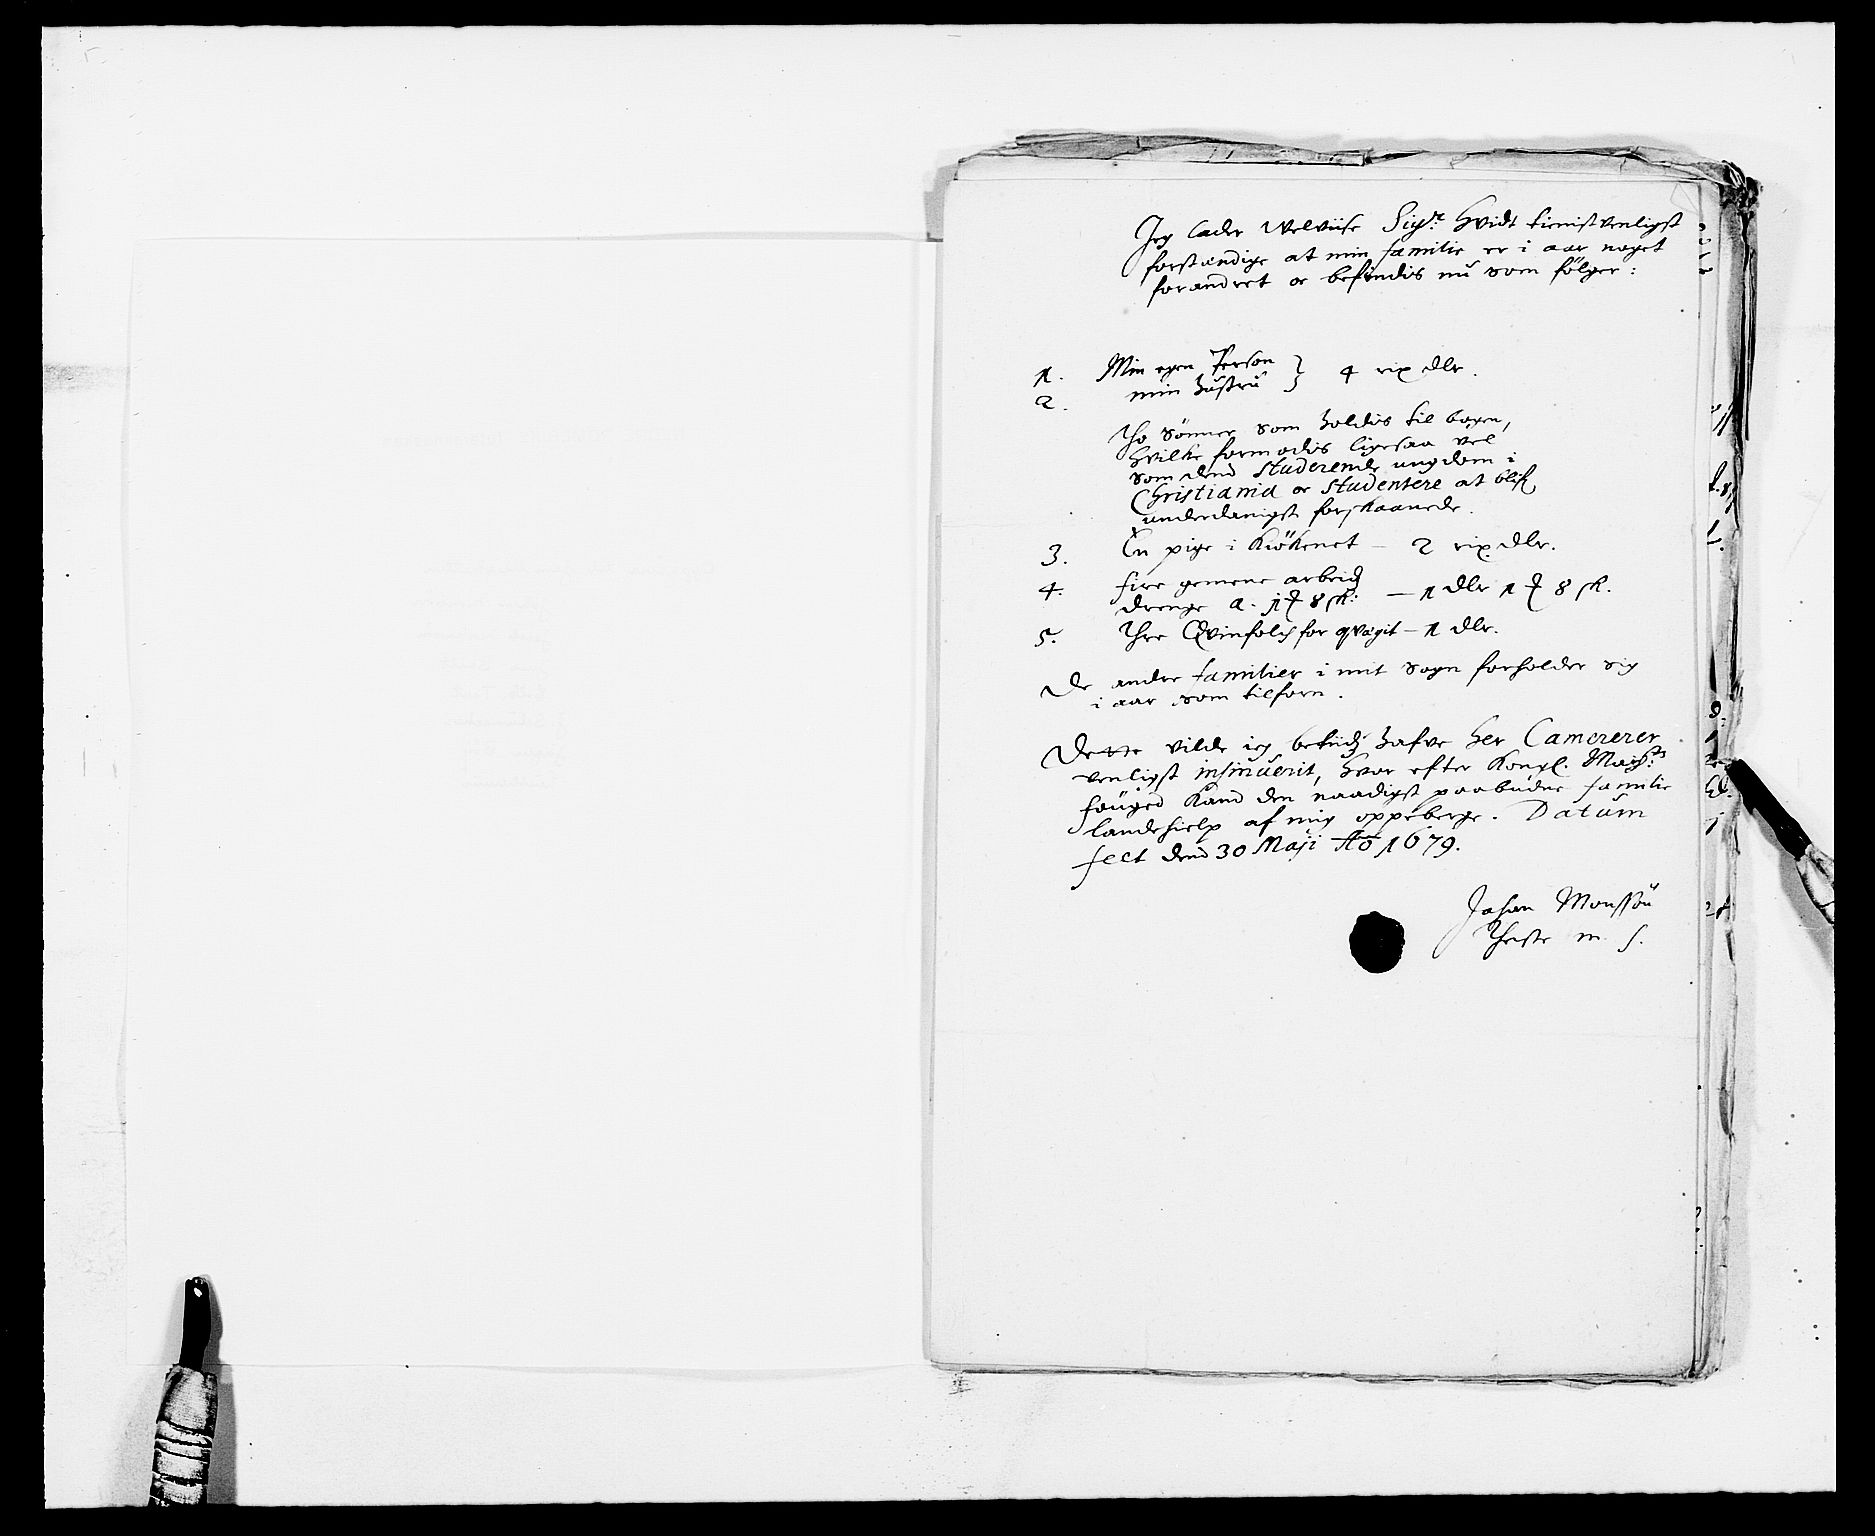 Jeg lader Velviise Sigr. Hvidt tienistvenligst
forstændige at min familie er i aar noget
forandret oc befindis nu som følger:
1. Min egen Person
2. min Hustru } 4 rix dlr.
Tho Sønner som holdis til bogen,
Hvilke formodis ligesaa vel
som dend Studerende ungdom i
Christiania oc Studentere at blifve
underdanigst forskaanede.
3. En pige i Kiøkenet – 2 rix dlr.
4. fire gemene arbeids
drenge a. 1 ʒ 8 sk: – 1 dlr 1 ʒ 8 sk.
5. Thre Qvinfolch for qvægit – 1 dlr.
De andre familier i mit Sogn forholder sig
i aar som tilforn.
Dette vilde ieg Her Camererer
venligst insinuerit, hvor efter Kongl. Mayst:s
fouged Kand den naadigst paabudne familie
landehielp af mig oppeberge. Datum
feet dend 30 Maji Ao 1679.
Johan Monssøn
m. s.